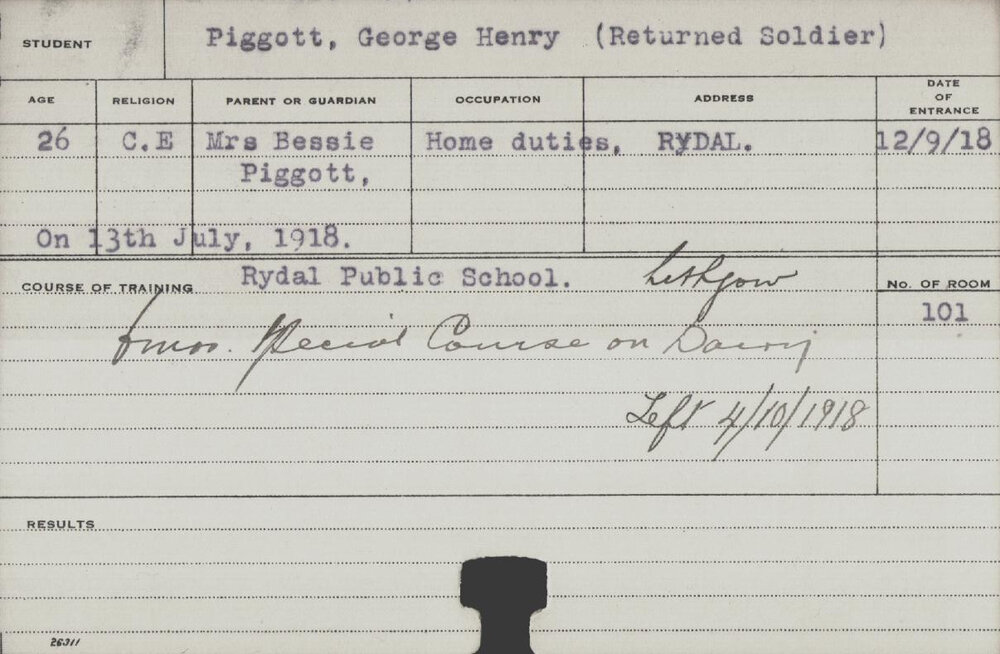 STUDENT Piggott, George Henry (Returned Soldier)
AGE RELIGION PARENT OR GUARDIAN OCCUPATION ADDRESS DATE OF ENTRANCE
26 C.E Mrs Bessie Home duties, RYDAL. 12/9/18
Piggott,
On 13th July, 1918.
COURSE OF TRAINING Rydal Public School. Lithgow No. OF ROOM
101
6 mos. Special Course on Dairy
Left 4/10/1918
RESULTS
26311